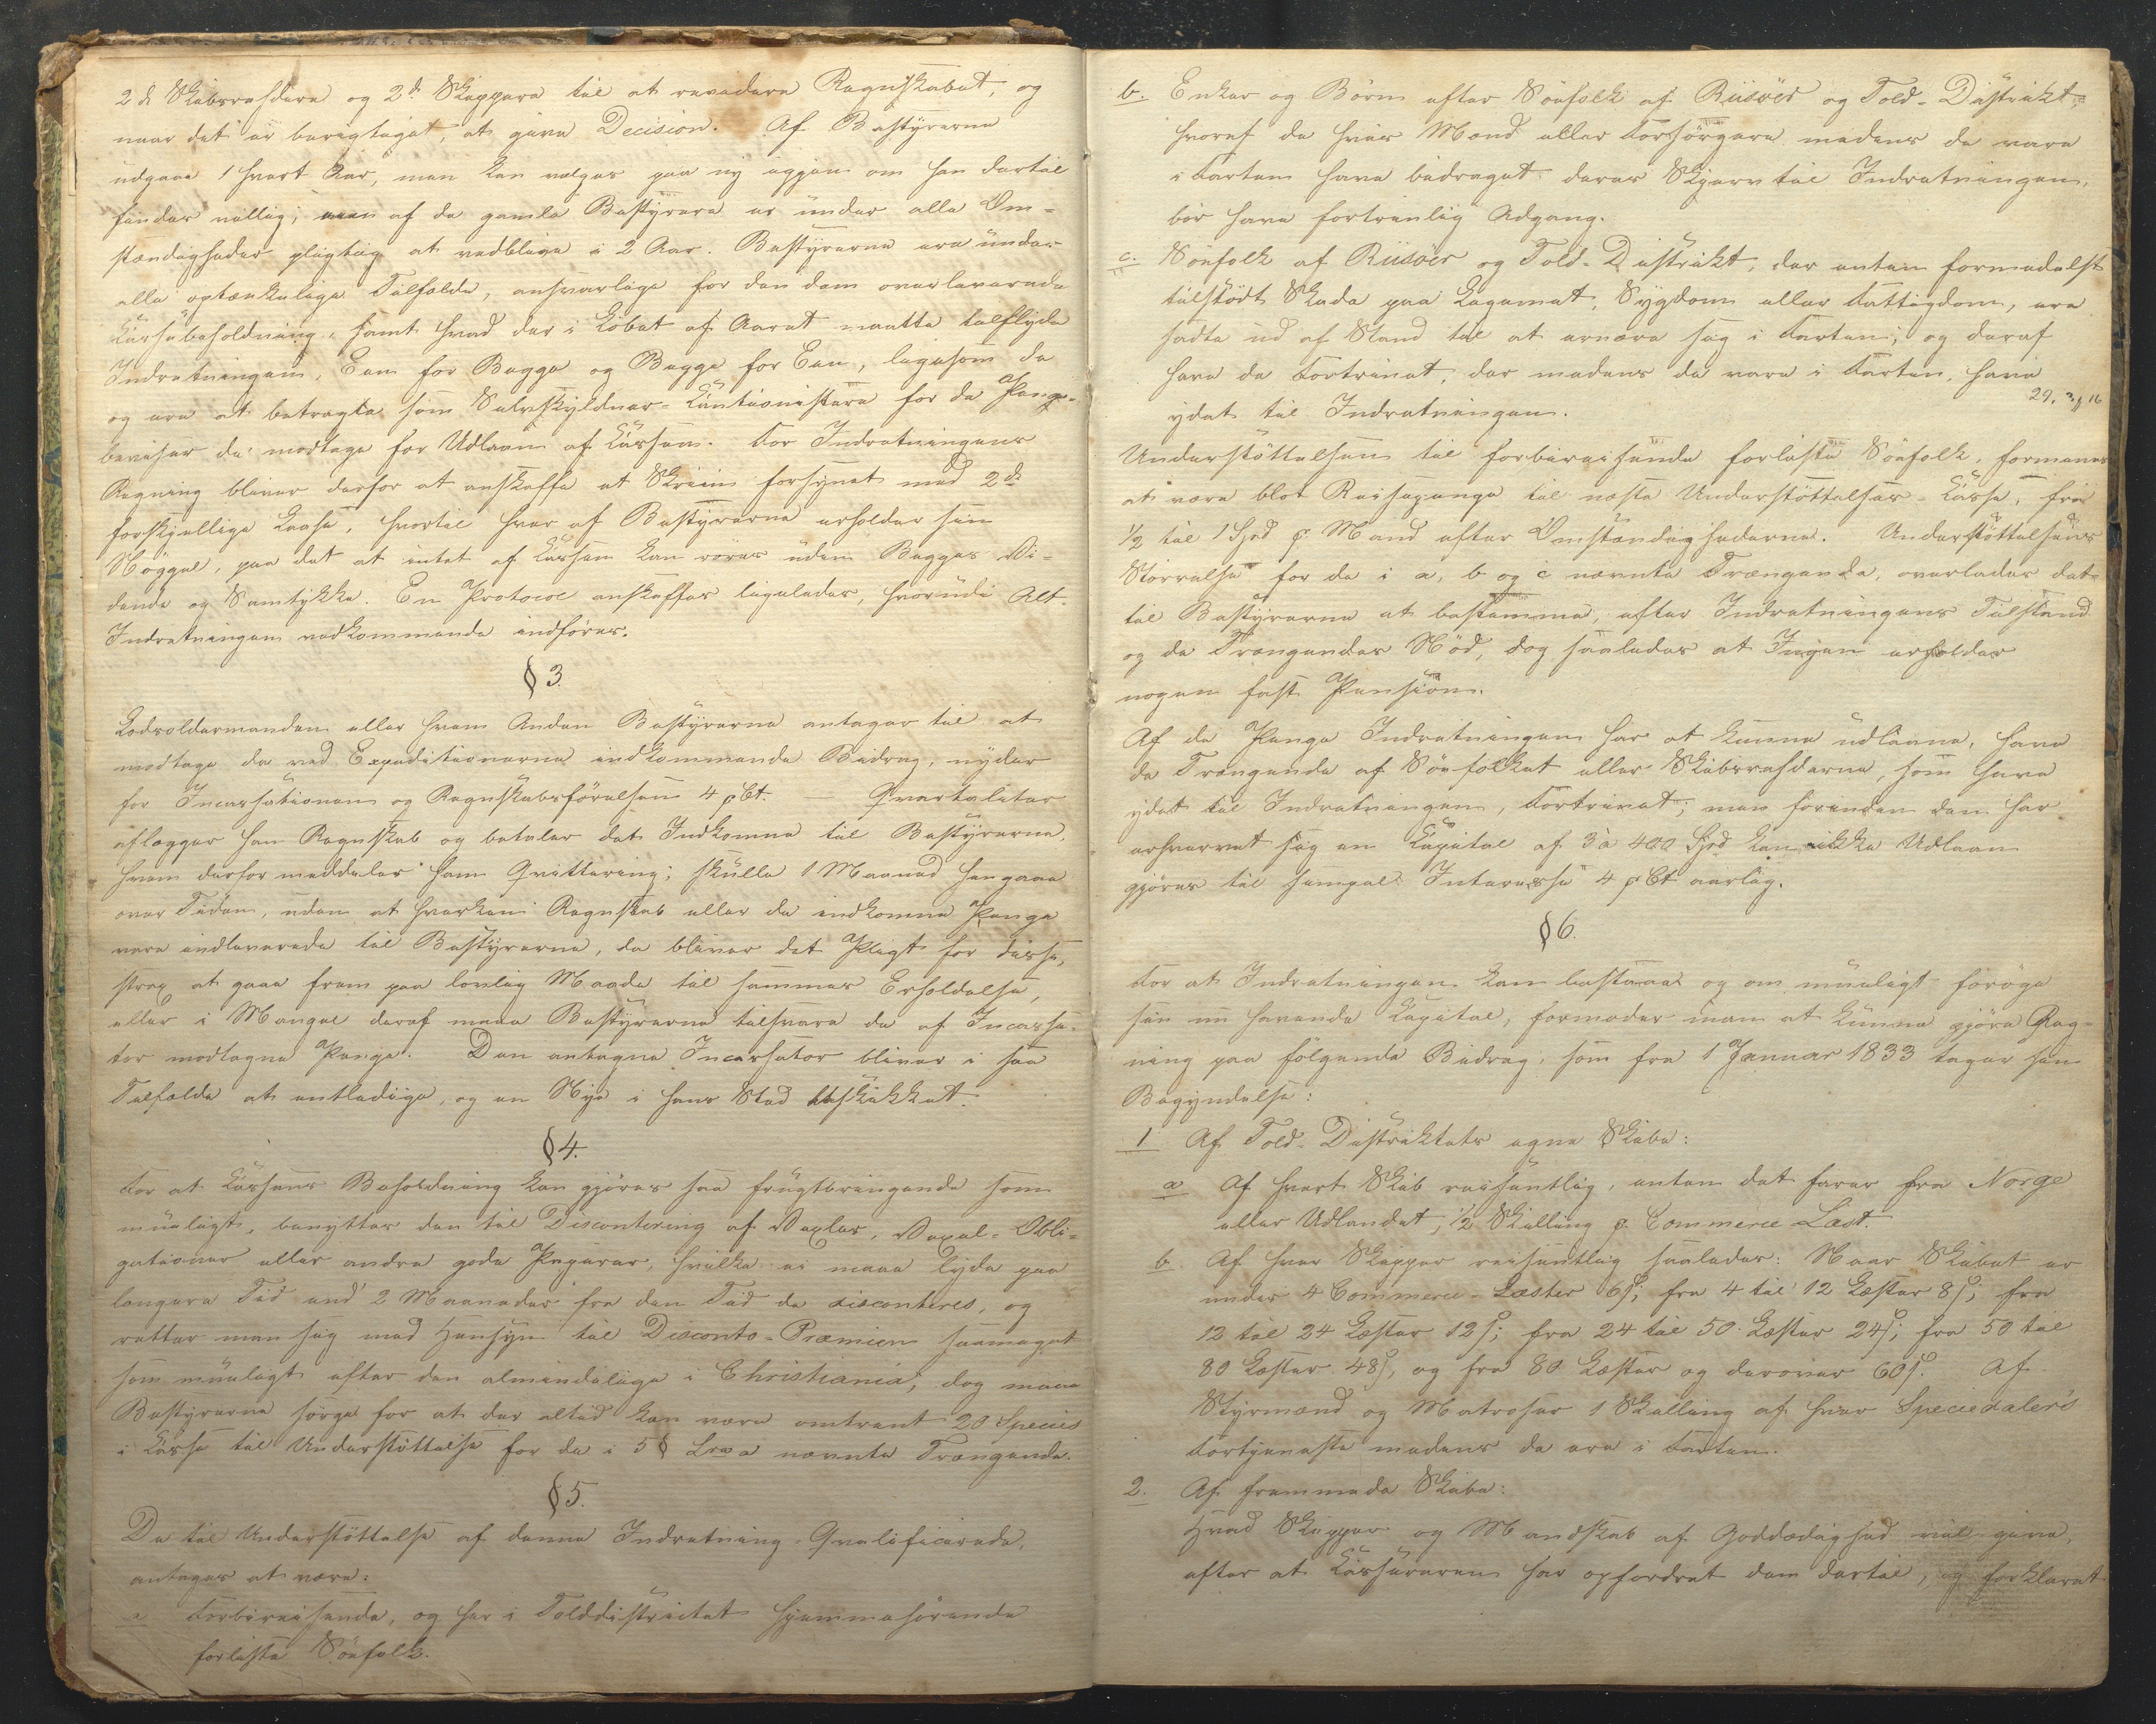 2de Skibsrehdere og 2de Skippere til at revedere Regnskabet, og
naar det er berigtiget, at give Decision. Af Bestyrerne
udgaae 1 hvert Aar, men kan vælges paa ny igjen om han dertil
findes villig; een af de gamle Bestyrere er under alle Om-
stændigheder pligtig at vedblive i 2 Aar. Bestyrerne ere under
alle optænkelige Tilfælde, ansvarlige for den dem overleverede
Cassebeholdning, samt hvad der i Løbet af Aaret maatte tilflyde
Indretningen, Een for Begge og Begge for Een, ligesom de
og ere at betragte som Selvskyldner-Cautionister for de Penge-
beviser de modtage for Udlaan af Cassen. For Indretningens
Regning bliver derfor at anskaffe et Skriin forsynet med 2de
forskjellige Laase, hvortil hver af Bestyrerne erholder sin
Nøggel, paa det at intet af Cassen kan røres uden Begges Vi-
dende og Samtykke. En Protocol anskaffes ligeledes, hvorudi Alt
Indretningen vedkommende indføres.
§3.
Lodsoldermanden eller hvem Anden Bestyrerne antager til at
modtage de ved Expeditionerne indkommende Bidrag, nyder
for Incassationen og Regnskabsførelsen 4 pCt. — Qvartaliter
aflægger han Regnskab og betaler det Indkomne til Bestyrerne,
hvem derfor meddeler ham Qvittering; skulle 1 Maaned hengaae
over Tiden, uden at hverken Regnskab eller de indkomne Penge
vare indleverede til Bestyrerne, da bliver det Pligt for disse,
strax at gaae frem paa lovlig Maade til sammes Erholdelse,
eller i Mangel deraf maae Bestyrerne tilsvare de af Incassa-
tor modtagne Penge. Den antagne Incassator bliver i saa
Tilfælde at entledige, og en Nye i hans Sted beskikket.
§4.
For at Cassens Beholdning kan gjøres saa frugtbringende som
mueligt, benyttes den til Discontering af Vexler, Vexel-Obli-
gationer eller andre gode Papirer, hvilke ei maae lyde paa
længere Tid end 2 Maaneder fra den Tid de disconteres, og
retter man sig med Hensyn til Disconto-Præmien saameget
som mueligt efter den almindelige i Christiania, dog maae
Bestyrerne sørge for at der altid kan være omtrent 20 Species
i Casse til Understøttelse for de i 5 § Lra a nævnte Trængende.
§5.
De til Understøttelse af denne Indretning Qvalificerede,
antages at være:
a Forbireisende, og her i Tolddistrictet hjemmehørende
forliste Søefolk.
b. Enker og Børn efter Søefolk af Riisøer og Told-Distrikt,
hvoraf de hvis Mænd eller Forsørgere medens de vare
i Farten have bidraget deres Skjerv til Indretningen,
bør have fortrinlig Adgang.
c. Søefolk af Riisøer og Told-Distrikt, der enten formedelst
tilstødt Skade paa Legemet, Sygdom eller Fattigdom, ere
satte ud af Stand til at ernære sig i Farten; og deraf
have de Fortrinet, der medens de vare i Farten, have
ydet til Indretningen.
29. 3 f 16
Understøttelsen til forbireisende forliste Søefolk, formenes
at være blot Reisepenge til næste Understøttelses-Casse, fra
1/2 til 1 Spd p Mand efter Omstændighederne. Understøttelsens
Størrelse for de i a, b og c nævnte Trængende, overlades det
til Bestyrerne at bestemme, efter Indretningens Tilstand
og de Trængendes Nød, dog saaledes at Ingen erholder
nogen fast Pension.
Af de Penge Indretningen har at kunne udlaane, have
de Trængende af Søefolket eller Skibsrehderne, som have
ydet til Indretningen, Fortrinet; men førenden den har
erhvervet sig en Capital af 3 à 400 Spd kan ikke Udlaan
gjøres til simpel Interesse 4 pCt aarlig.
§6.
For at Indretningen kan bestaae og om mueligt forøge
sin nu havende Capital, formoder man at kunne gjøre Reg-
ning paa følgende Bidrag, som fra 1 Januar 1833 tager sin
Begyndelse:
1 Af Told-Distriktets egne Skibe:
a Af hvert Skib reisentlig, enten det farer fra Norge
eller Udlandet, 1/2 Skilling p. Commerce-Læst.
b. Af hver Skipper reisentlig saaledes: Naar Skibet er
under 4 Commerce-Læster 6 ß; fra 4 til 12 Læster 8 ß; fra
12 til 24 Læster 12 ß; fra 24 til 50 Læster 24 ß; fra 50 til
80 Læster 48 ß, og fra 80 Læster og derover 60 ß. Af
Styrmænd og Matroser 1 Skilling af hver Speciedalers
Fortjeneste medens de ere i Farten.
2. Af fremmede Skibe:
Hvad Skipper og Mandskab af Goddædighed vil give,
efter at Cassereren har opfordret dem dertil, og forklaret